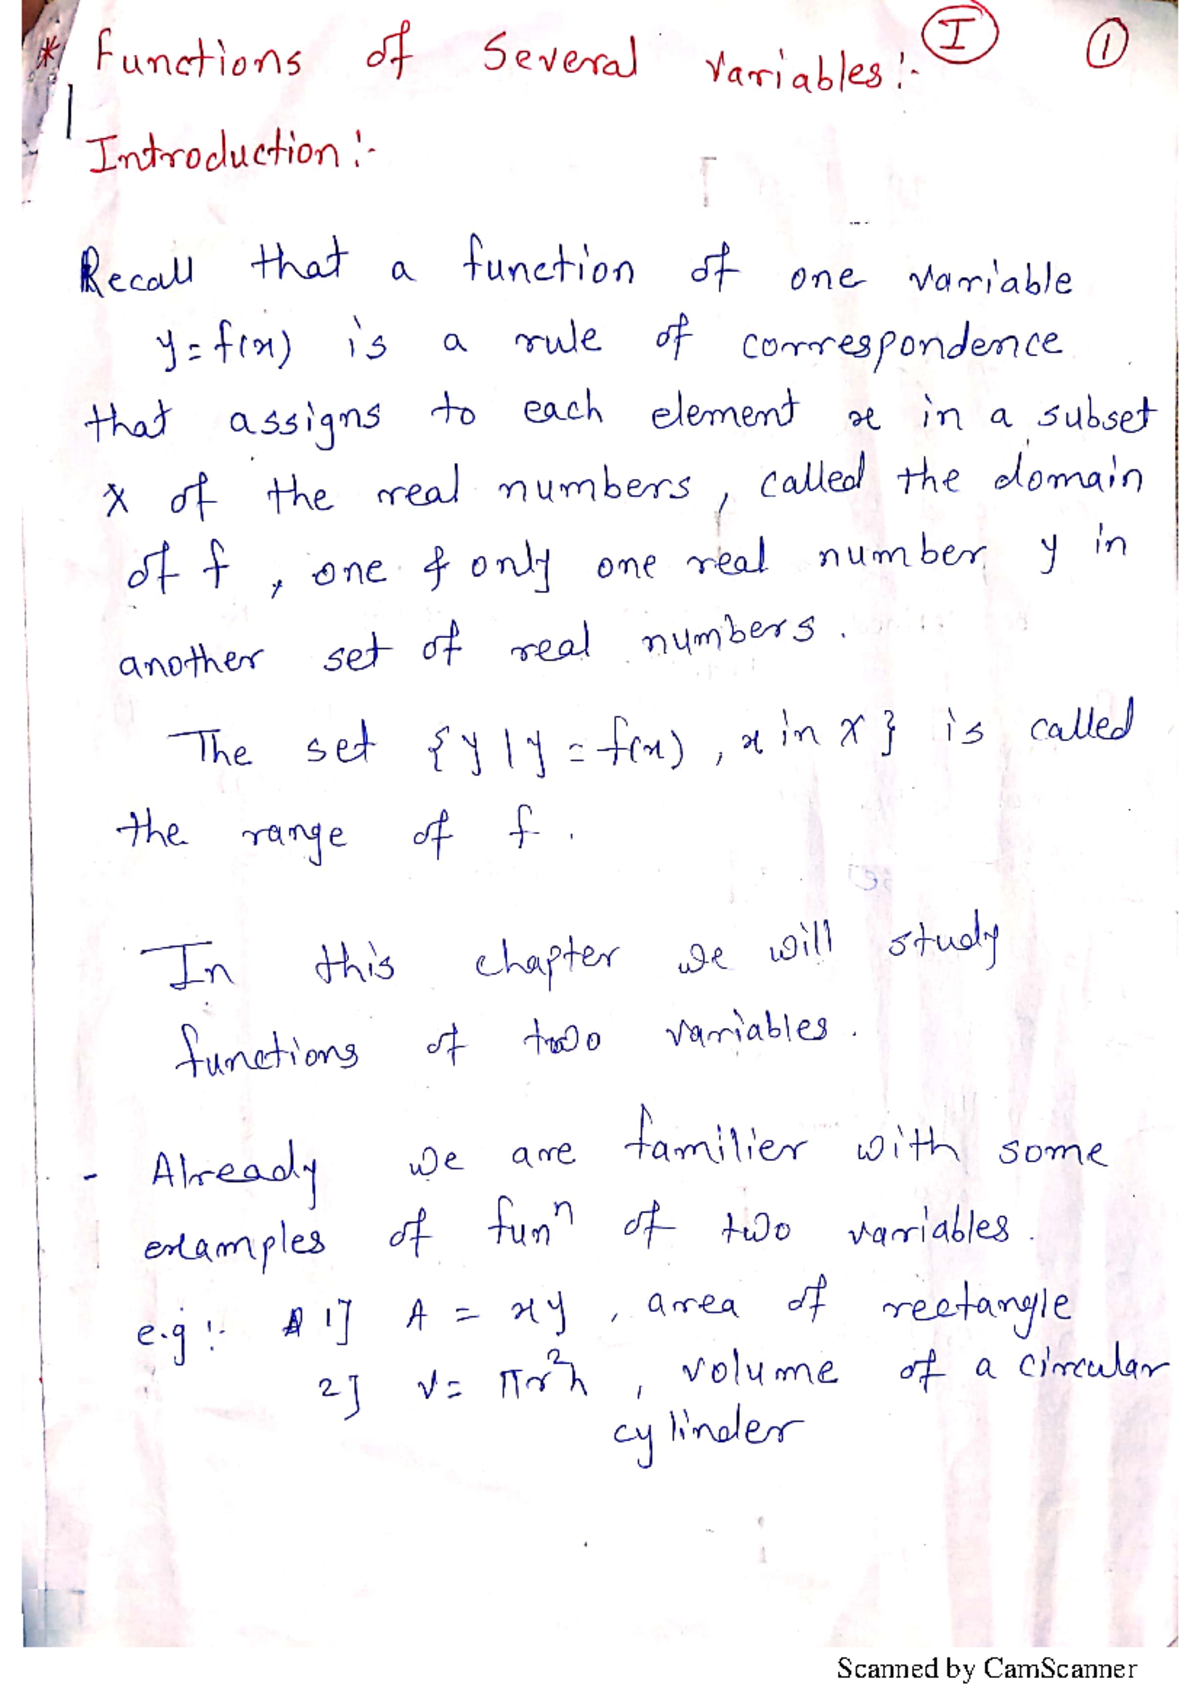 * Functions of Several Variables:- I 1
Introduction:-
Recall that a function of one variable
y = f(x) is a rule of correspondence
that assigns to each element x in a subset
X of the real numbers, called the domain
of f, one & only one real number y in
another set of real numbers.
The set {y | y = f(x), x in X} is called
the range of f.
In this chapter we will study
functions of two variables.
- Already we are familier with some
examples of funⁿ of two variables.
e.g :- 1] A = xy, area of rectangle
2] V = πr²h, volume of a circular
cylinder
Scanned by CamScanner